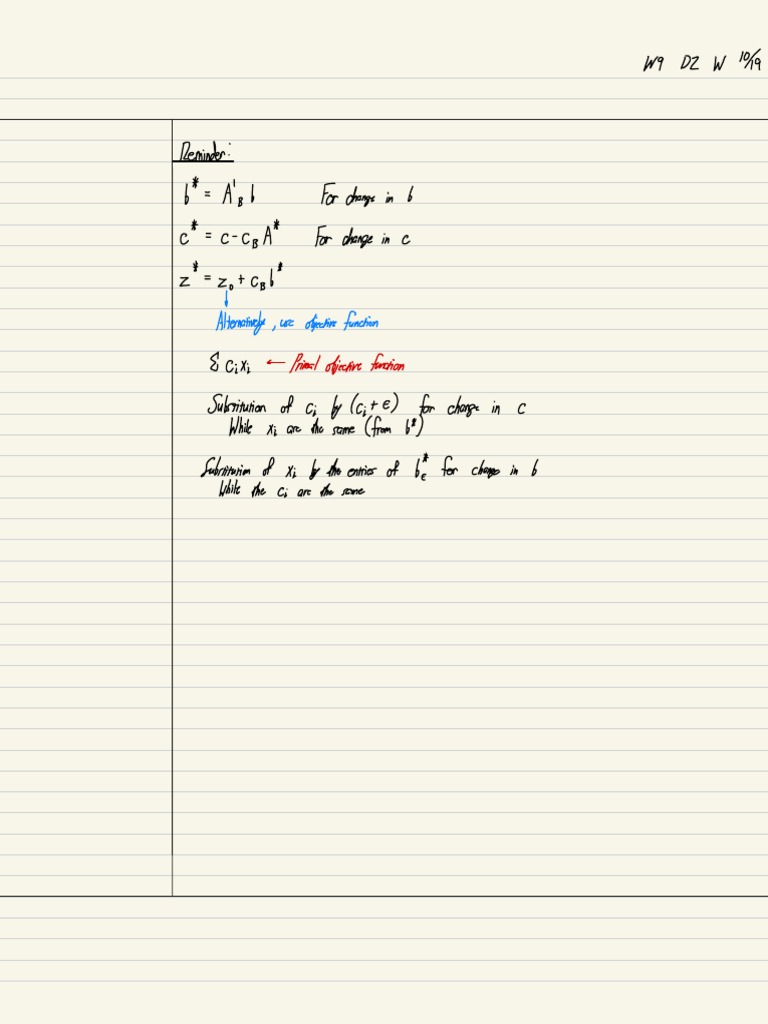 W9 D2 W 10/19
Reminder:
b* = A'_B b For change in b
c* = c - c_B A* For change in c
z* = z_0 + c_B b*
Alternatively, use objective function
Σ c_i x_i ← Primal objective function
Substitution of c_i by (c_i + ϵ) for change in c
While x_i are the same (from b*)
Substitution of x_i by the entries of b*_ϵ for change in b
While the c_i are the same